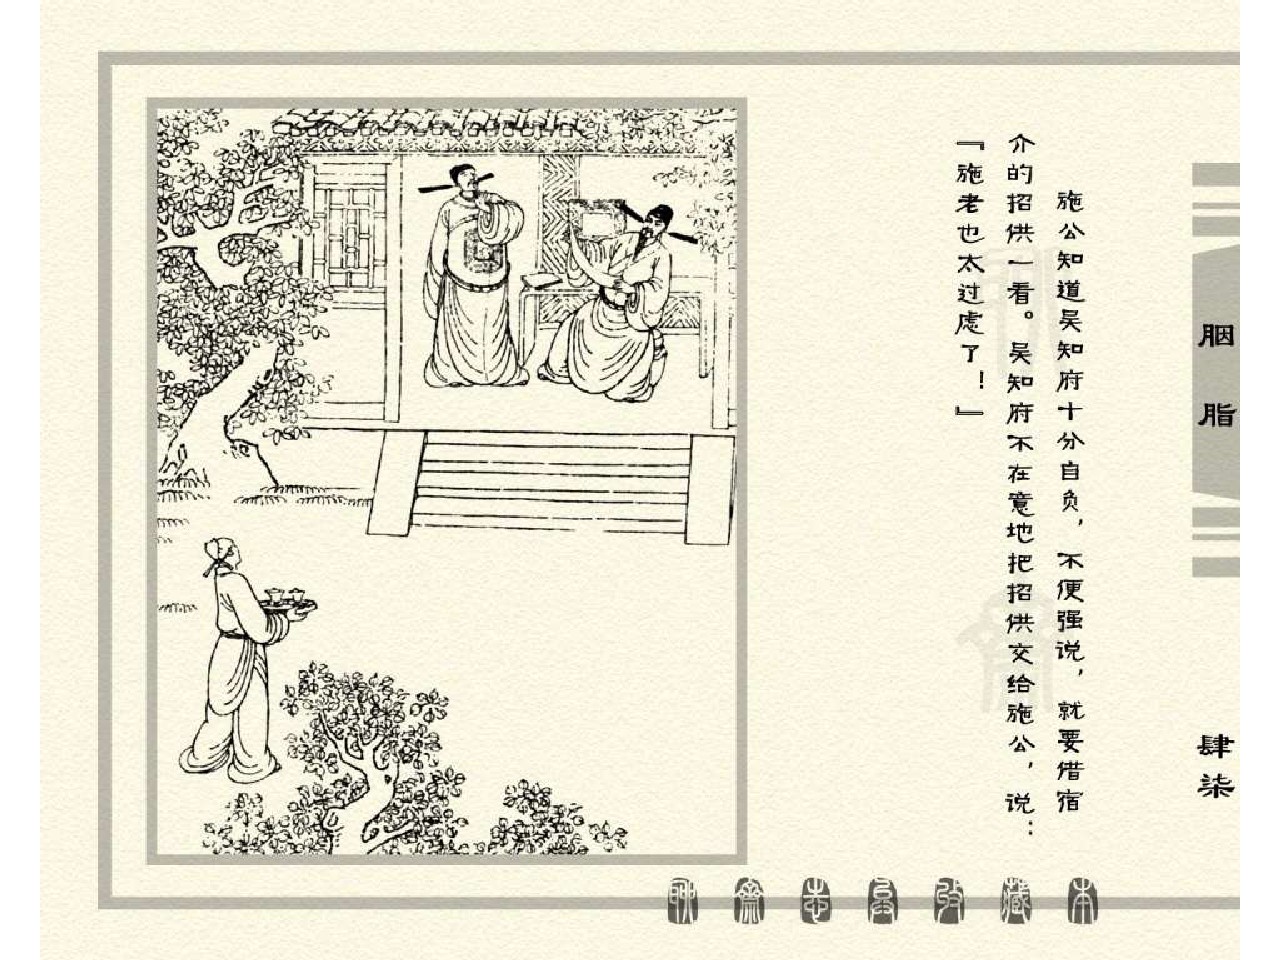 施公知道吴知府十分自负，不便强说，就要借宿
介的招供一看。吴知府不在意地把招供交给施公，说：
『施老也太过虑了！』
胭脂
肆柒
聊斋志异收藏本